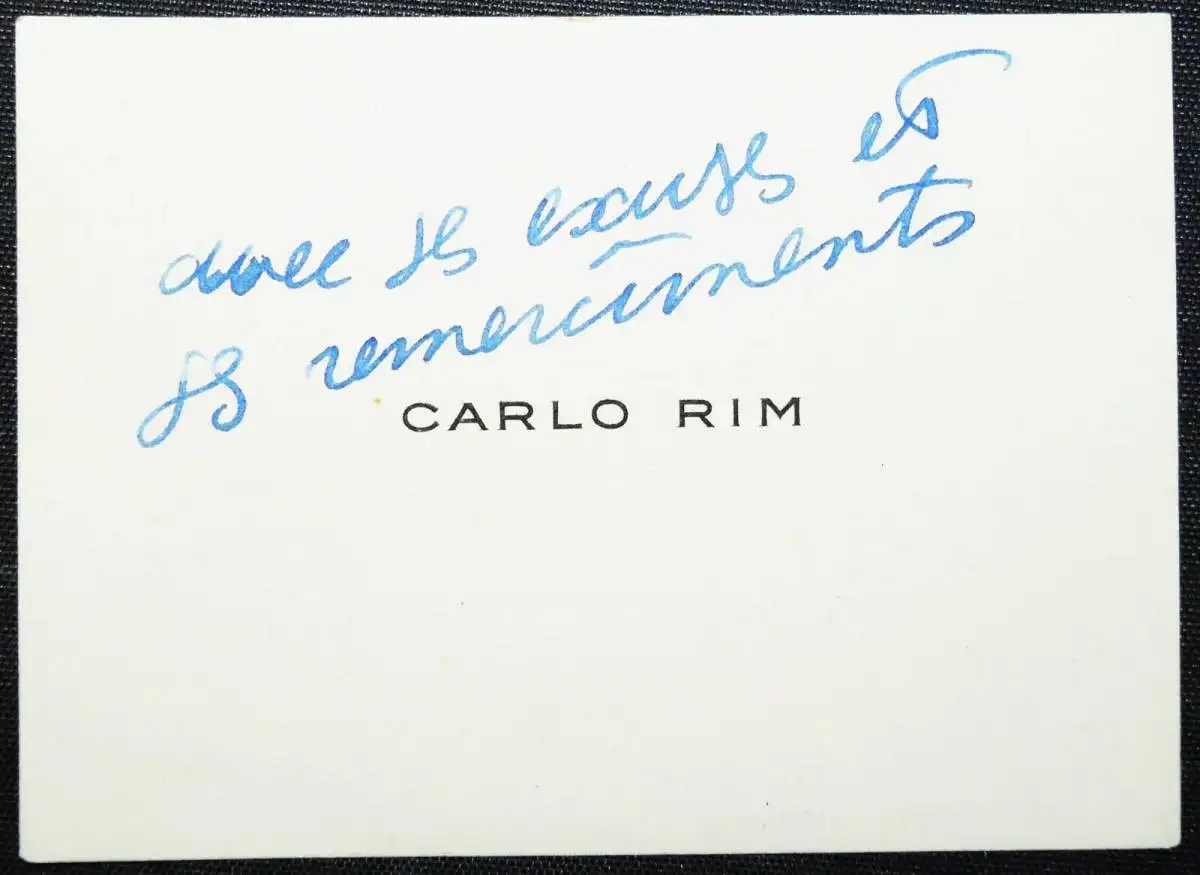 avec ses excuses et
ses remercîments
CARLO RIM